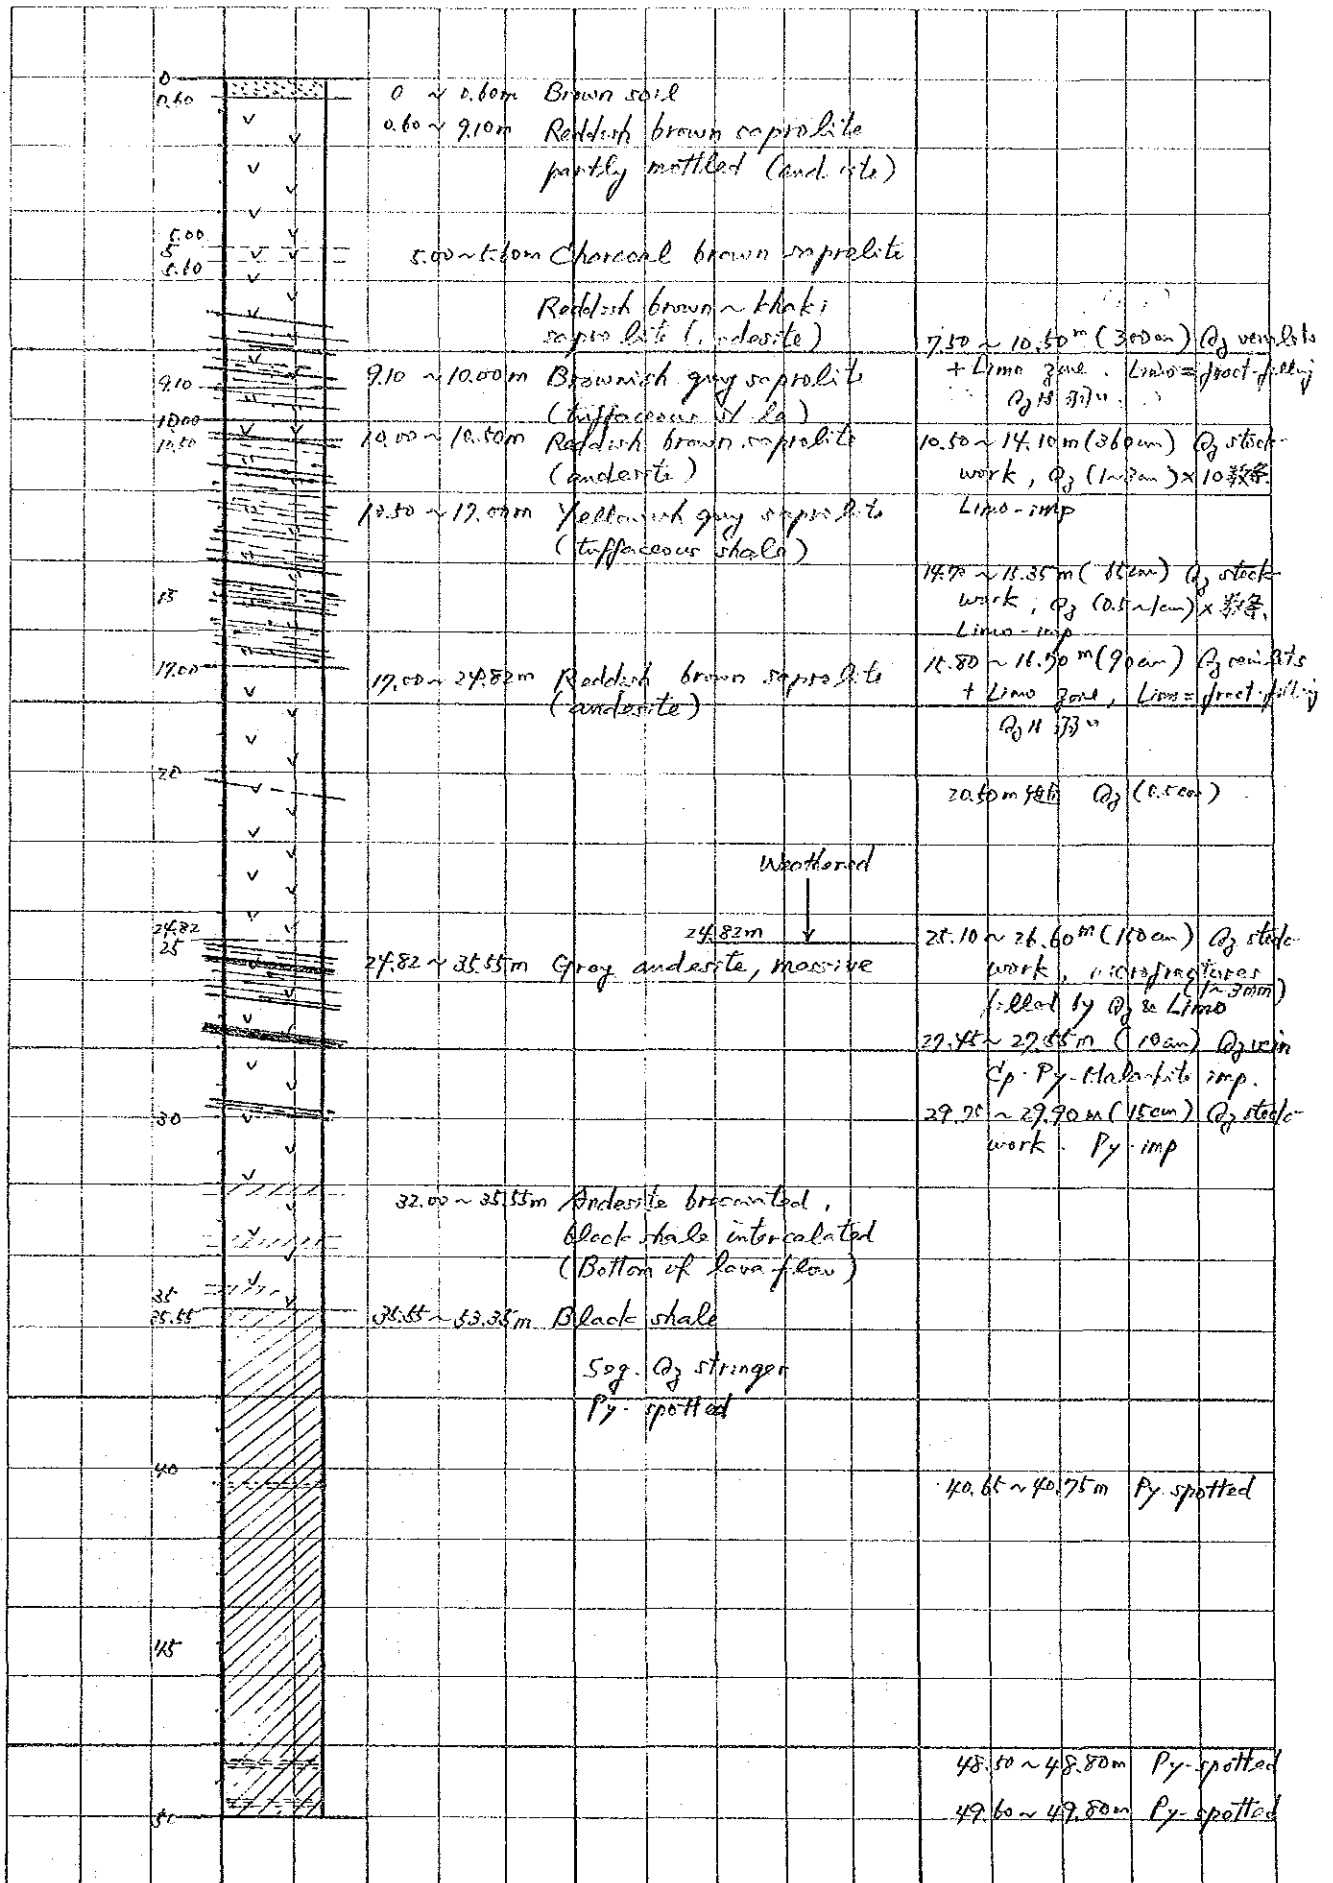 0
0.60
0 ~ 0.60m Brown soil
0.60 ~ 9.10m Reddish brown saprolite
partly mottled (and ite)
5.00
5
5.60
5.00~5.60m Charcoal brown saprolite
Reddish brown ~ khaki
saprolite ( ndesite)
9.10
10.00
10.50
9.10 ~ 10.00m Brownish gray saprolite
(tuffaceous sh le)
10.00 ~ 10.50m Reddish brown saprolite
(andesite)
10.50 ~ 17.00m Yellowish gray saprolite
(tuffaceous shale)
15
17.00
17.00 ~ 24.82m Reddish brown saprolite
(andesite)
20
Weathered
24.82m
24.82
25
24.82 ~ 35.55m Gray andesite, massive
30
32.00 ~ 35.55m Andesite brecciated,
black shale intercalated
(Bottom of lava flow)
35
35.55
35.55 ~ 53.35m Black shale
Seg. Qz stringer
Py-spotted
40
45
50
7.50 ~ 10.50m (300cm) Qz veinlets
+ Limo zone. Limo = fract-filling
Qzは弱い.
10.50 ~ 14.10m (360cm) Qz stock-
work, Qz (1~3cm) x 10数条.
Limo-imp
14.70 ~ 15.35m (65cm) Qz stock-
work, Qz (0.5~1cm) x 数条.
Limo-imp
15.80 ~ 16.70m (90cm) Qz veinlets
+ Limo zone, Limo = fract-filling
Qzは弱い
20.50m Qz (0.5cm)
25.10 ~ 26.60m (150cm) Qz stock-
work, microfractures
(1~3mm)
filled by Qz & Limo
27.45 ~ 27.55m (10cm) Qz vein
Cp-Py-Malachite imp.
29.75 ~ 29.90m (15cm) Qz stock-
work. Py-imp
40.65 ~ 40.75m Py-spotted
48.50 ~ 48.80m Py-spotted
49.60 ~ 49.80m Py-spotted